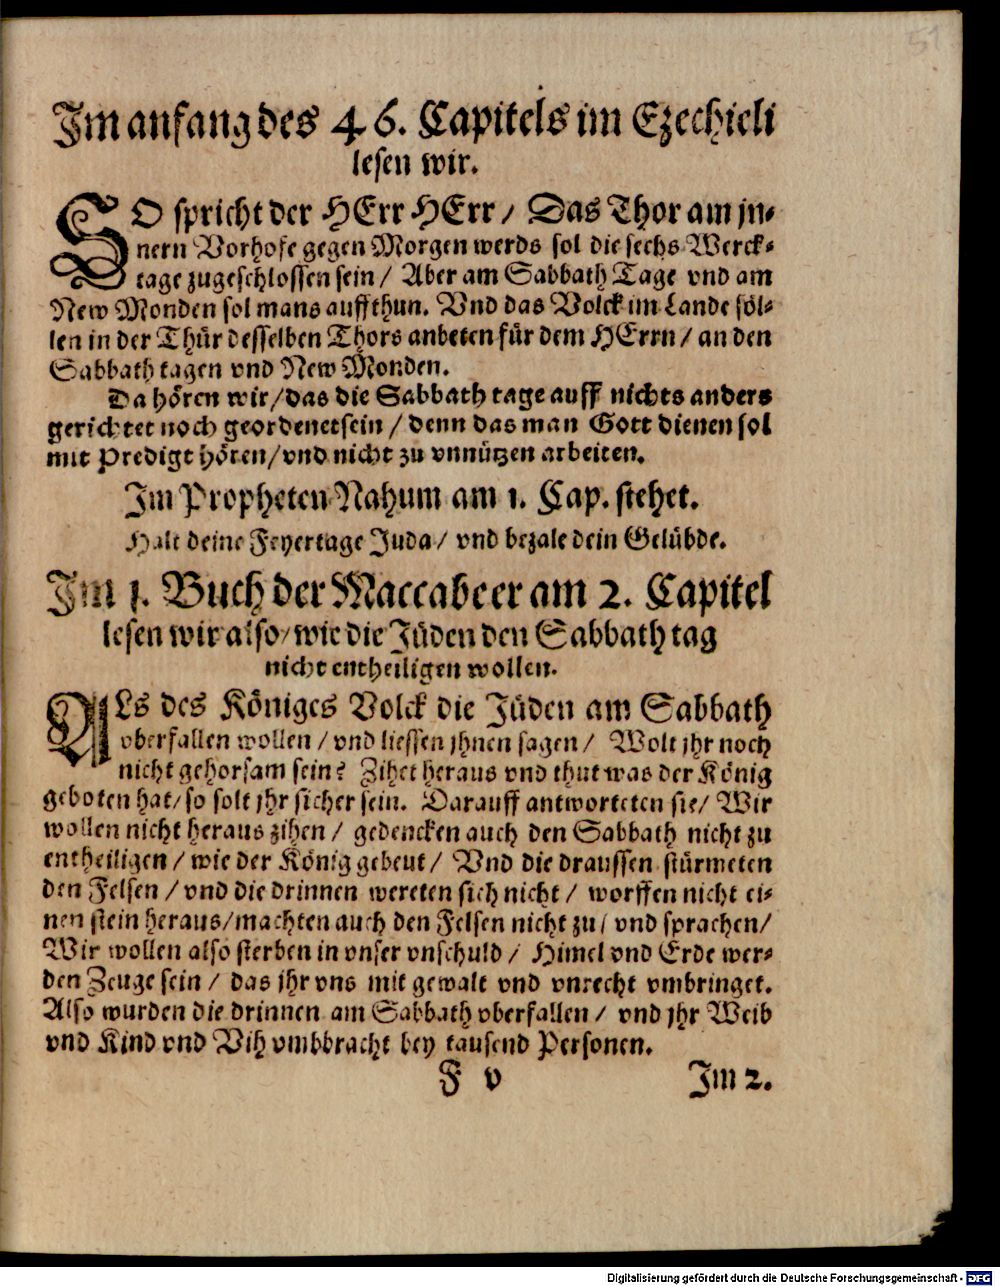 51
Im anfang des 46. Capitels im Ezechieli
lesen wir.
SO spricht der HErr HErr / Das Thor am jn-
nern Vorhofe gegen Morgen werds sol die sechs Werck-
tage zugeschlossen sein / Aber am Sabbath Tage vnd am
New Monden sol mans auffthun. Vnd das Volck im Lande söl-
len in der Thür desselben Thors anbeten für dem HErrn / an den
Sabbath tagen vnd New Monden.
Da hören wir / das die Sabbath tage auff nichts anders
gerichtet noch geordenet sein / denn das man Gott dienen sol
mit Predigt hören / vnd nicht zu vnnützen arbeiten.
Im Propheten Nahum am 1. Cap. stehet.
Halt deine Feyertage Juda / vnd bezale dein Gelübde.
Im 1. Buch der Maccabeer am 2. Capitel
lesen wir also / wie die Jüden den Sabbath tag
nicht entheiligen wollen.
ALs des Königes Volck die Jüden am Sabbath
vberfallen wollen / vnd liessen jhnen sagen / Wolt jhr noch
nicht gehorsam sein? Zihet heraus vnd thut was der König
geboten hat / so solt jhr sicher sein. Darauff antworteten sie / Wir
wollen nicht heraus zihen / gedencken auch den Sabbath nicht zu
entheiligen / wie der König gebeut / Vnd die draussen stürmeten
den Felsen / vnd die drinnen wereten sich nicht / worffen nicht ei-
nen stein heraus / machten auch den Felsen nicht zu / vnd sprachen /
Wir wollen also sterben in vnser vnschuld / Himel vnd Erde wer-
den Zeuge sein / das jhr vns mit gewalt vnd vnrecht vmbringet.
Also wurden die drinnen am Sabbath vberfallen / vnd jhr Weib
vnd Kind vnd Vih vmbbracht bey tausend Personen.
F v Im 2.
Digitalisierung gefördert durch die Deutsche Forschungsgemeinschaft - DFG